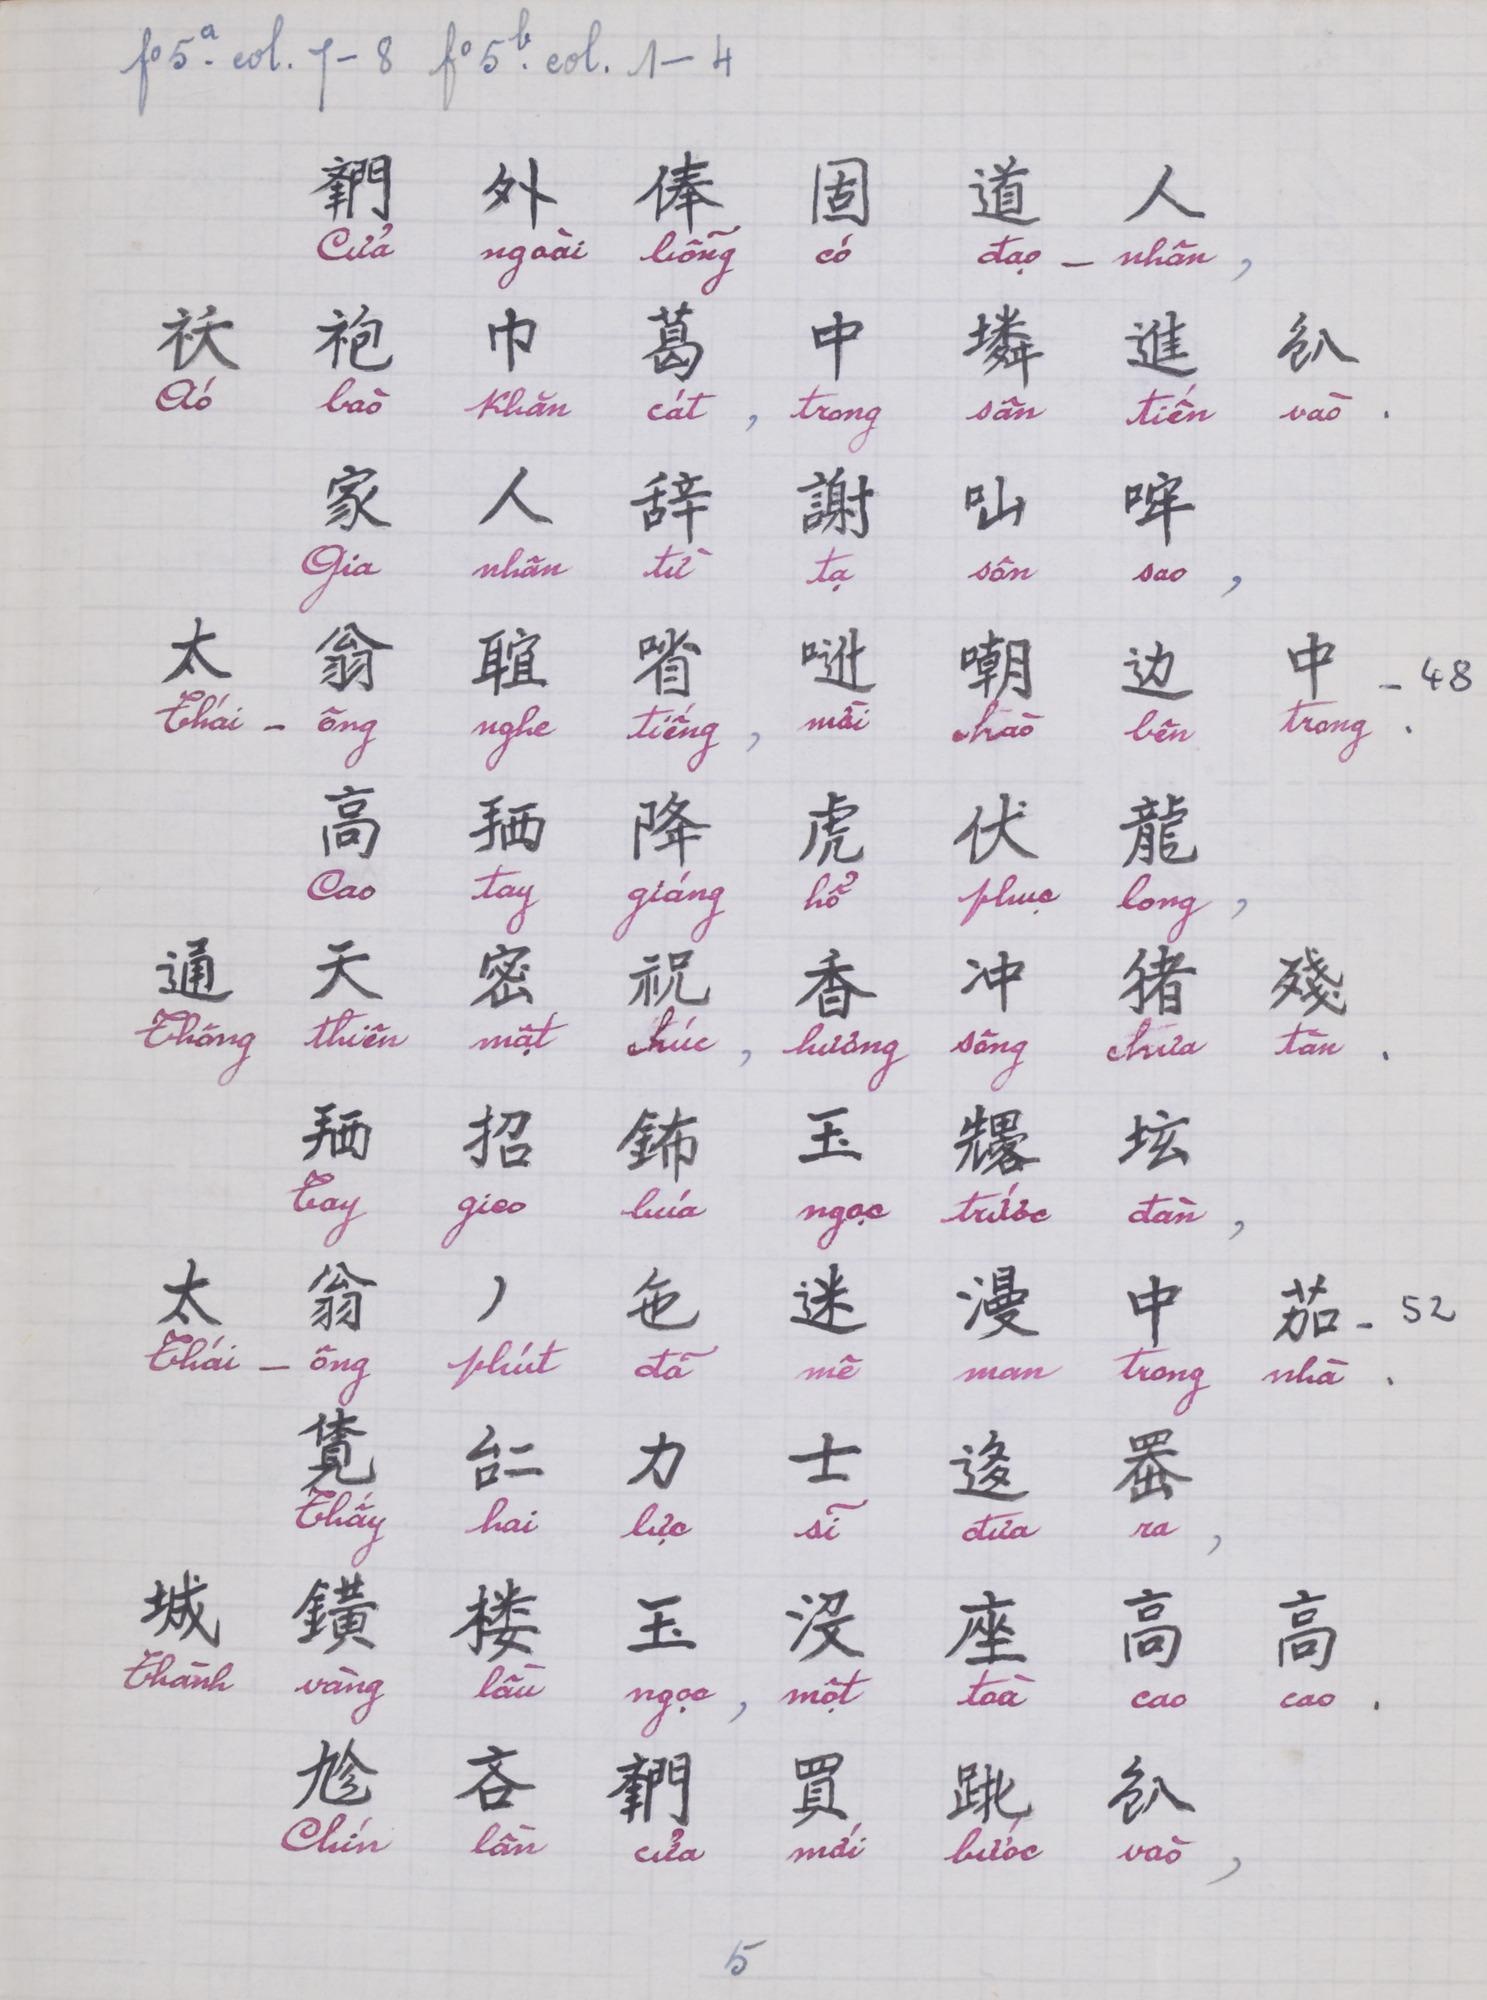 fº5ª. col. 7-8 fº5b. col. 1-4
𨷯 外 俸 固 道 人
Cửa ngoài bỗng có đạo - nhân,
袄 袍 巾 葛 中 𡑝 進 𠓨
Aó bào khăn cát, trong sân tiến vào.
家 人 辞 謝 𠱋 哰
Gia nhân từ tạ sôn sao,
太 翁 𦖑 㗂 𠶆 嘲 边 中 - 48
Thái - ông nghe tiếng, mời chào bên trong.
高 𢬣 降 虎 伏 龍
Cao tay giáng hổ phục long,
通 天 密 祝 香 冲 猪 殘
Thông thiên mật chúc, hương sông chưa tàn.
𢬣 招 鈽 玉 𠓀 坛
Tay gieo búa ngọc trước đàn,
太 翁 丿 㐌 迷 漫 中 茹 - 52
Thái - ông phút đã mê man trong nhà.
𧡊 𠄩 力 士 迻 𦋦
Thấy hai lực sĩ đưa ra,
城 鐄 楼 玉 没 座 高 高
Thành vàng lầu ngọc, một toà cao cao.
𠃩 吝 𨷯 買 𨀈 𠓨
Chín lần cửa mới bước vào,
5